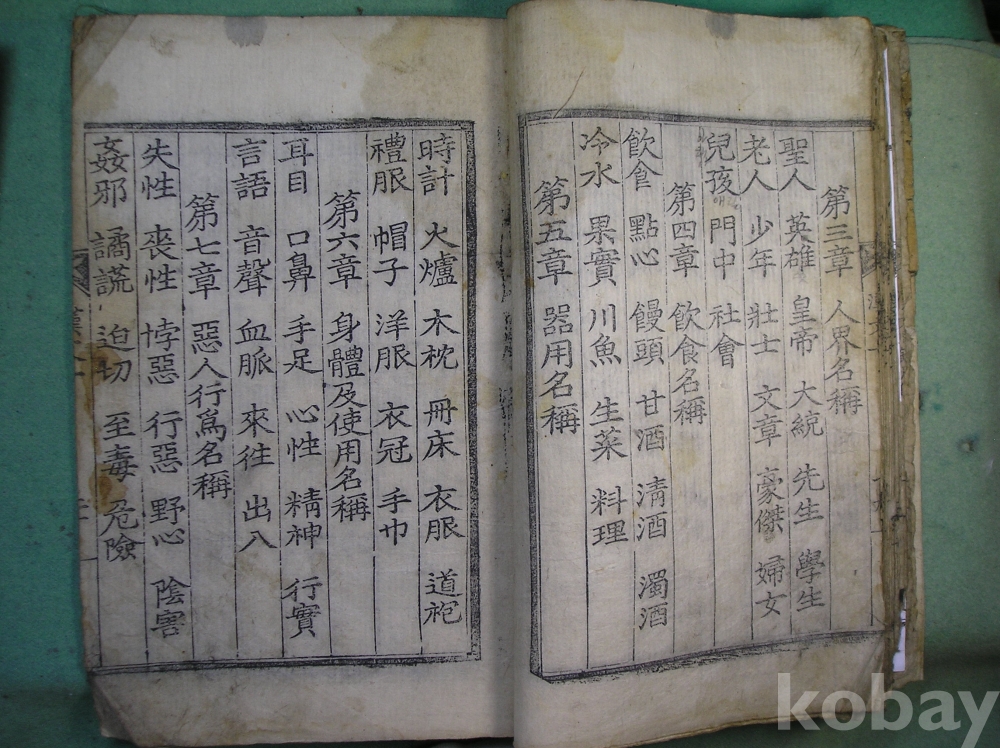 第三章 人界名稱
聖人 英雄 皇帝 大統 先生 學生
老人 少年 壯士 文章 豪傑 婦女
兒孩 門中 社會
第四章 飮食名稱
飮食 點心 饅頭 甘酒 淸酒 濁酒
冷水 果實 川魚 生菜 料理
第五章 器用名稱
時計 火爐 木枕 冊床 衣服 道袍
禮服 帽子 洋服 衣冠 手巾
第六章 身體及使用名稱
耳目 口鼻 手足 心性 精神 行實
言語 音聲 血脈 來往 出入
第七章 惡人行爲名稱
失性 喪性 悖惡 行惡 野心 陰害
姦邪 譎謊 迫切 至毒 危險
kobay